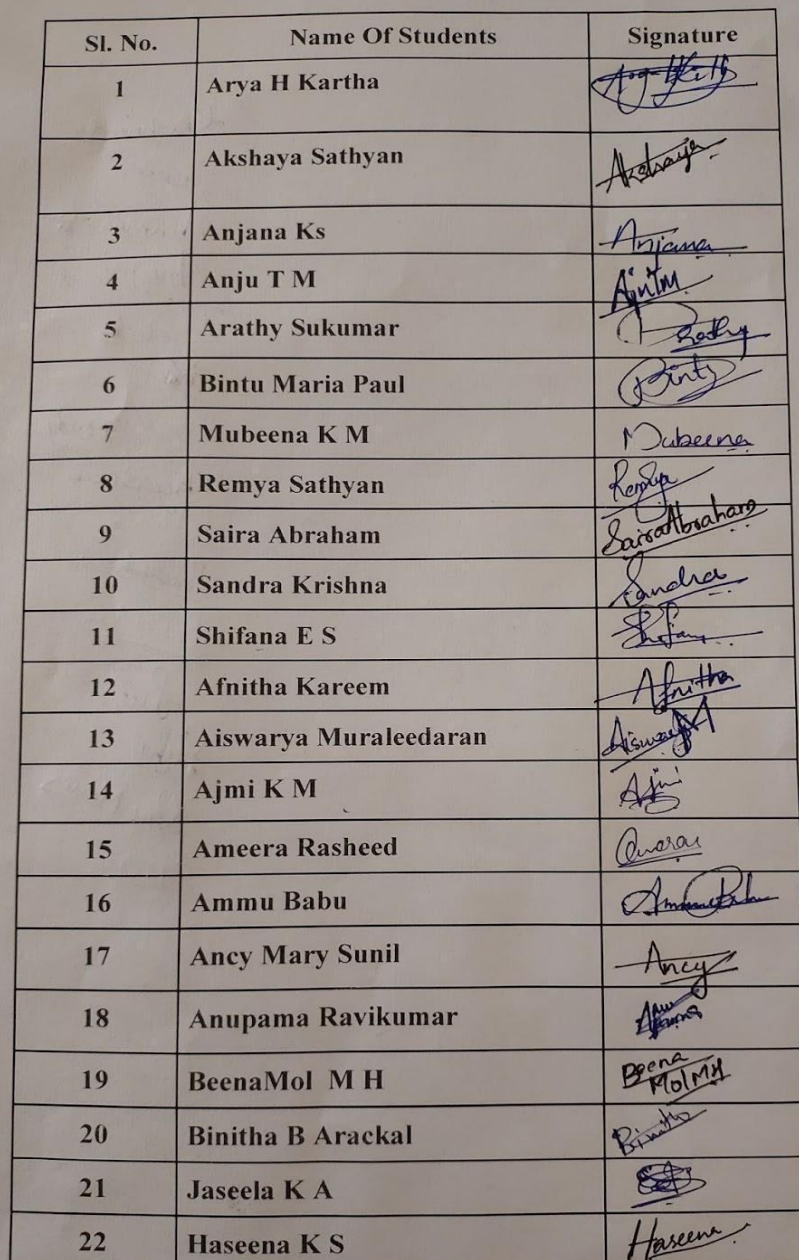 Sl. No. Name Of Students Signature
1 Arya H Kartha
2 Akshaya Sathyan Akshaya
3 Anjana Ks Anjana
4 Anju T M
5 Arathy Sukumar
6 Bintu Maria Paul
7 Mubeena K M Mubeena
8 Remya Sathyan Remya
9 Saira Abraham Saira Abraham
10 Sandra Krishna Sandra
11 Shifana E S
12 Afnitha Kareem Afnitha
13 Aiswarya Muraleedaran
14 Ajmi K M Ajmi
15 Ameera Rasheed
16 Ammu Babu
17 Ancy Mary Sunil Ancy
18 Anupama Ravikumar
19 BeenaMol M H Beena
Mol MH
20 Binitha B Arackal Binitha
21 Jaseela K A
22 Haseena K S Haseena